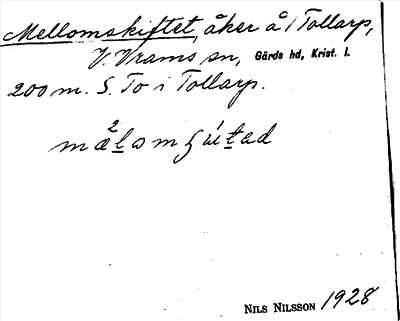 Mellomskiftet, åker å 1 Tollarp,
V. Vrams sn, Gärds hd, Krist. l.
200 m. S. To i Tollarp.
NILS NILSSON 1928